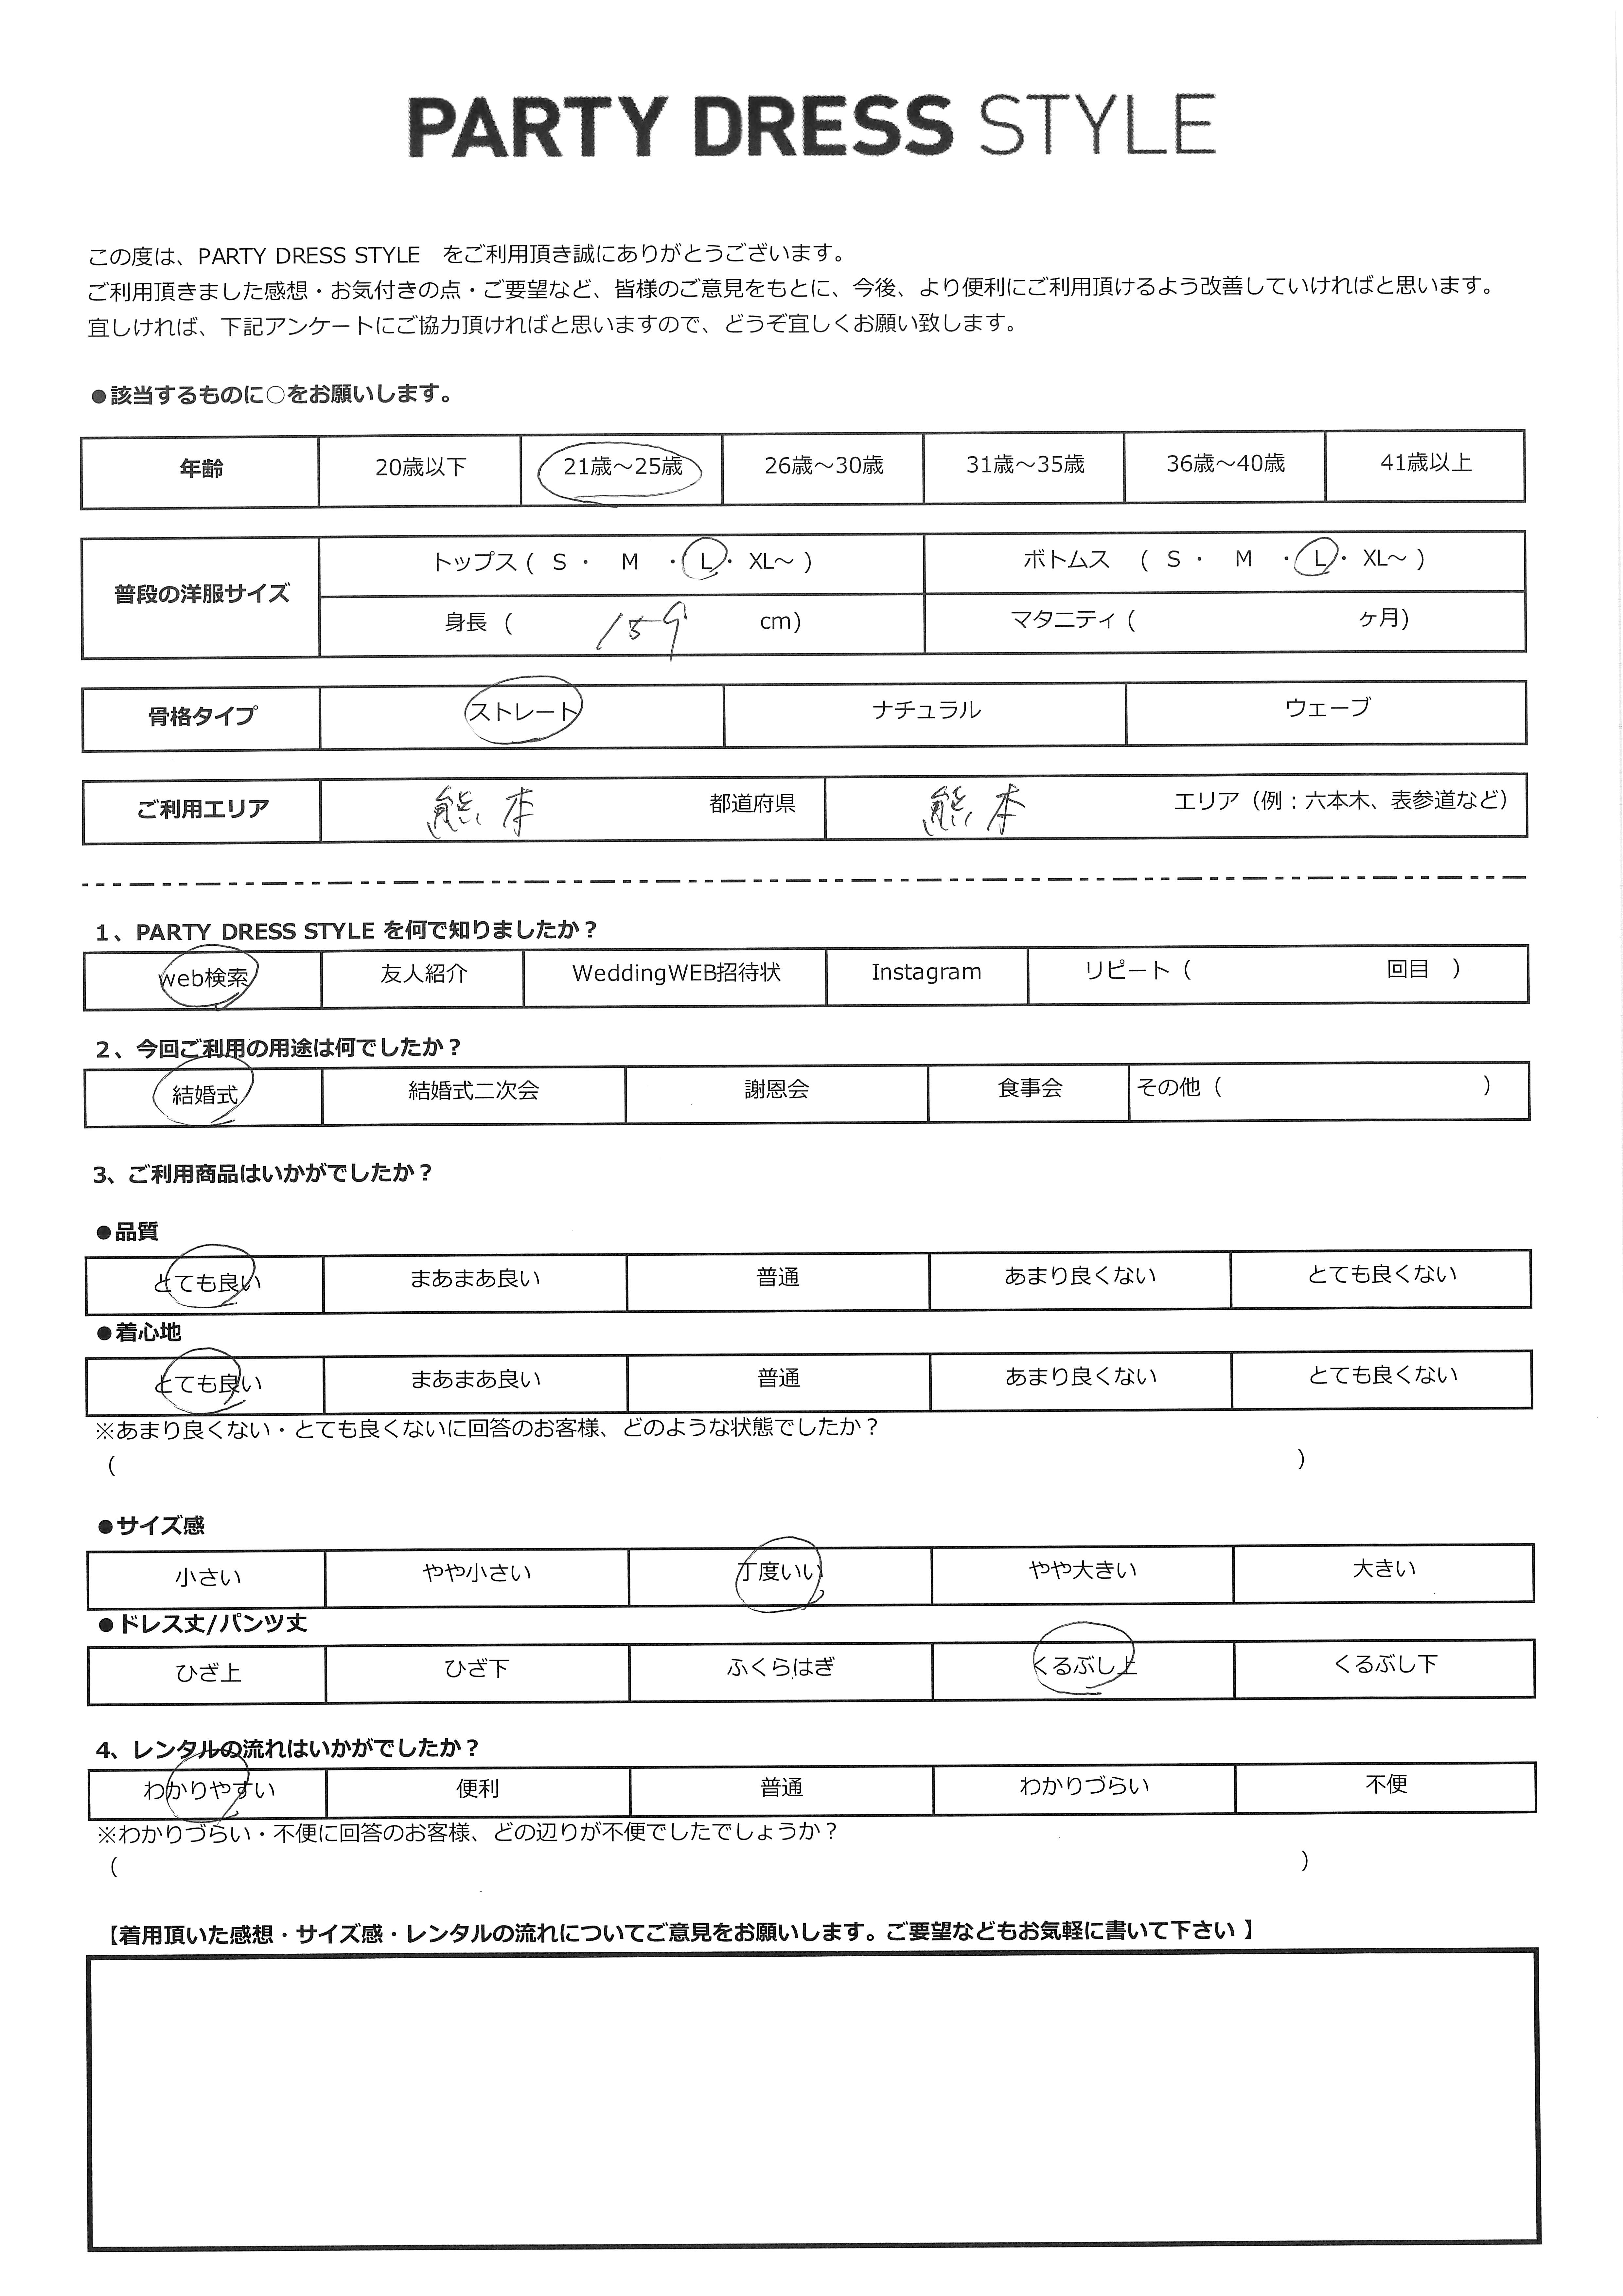 PARTY DRESS STYLE
この度は、PARTY DRESS STYLE をご利用頂き誠にありがとうございます。
ご利用頂きました感想・お気付きの点・ご要望など、皆様のご意見をもとに、今後、より便利にご利用頂けるよう改善していければと思います。
宜しければ、下記アンケートにご協力頂ければと思いますので、どうぞ宜しくお願い致します。
●該当するものに○をお願いします。
年齢 20歳以下 21歳～25歳 26歳～30歳 31歳～35歳 36歳～40歳 41歳以上
普段の洋服サイズ トップス ( S ・ M ・ L ・ XL～ ) ボトムス ( S ・ M ・ L ・ XL～ )
身長 ( 159 cm) マタニティ ( ヶ月)
骨格タイプ ストレート ナチュラル ウェーブ
ご利用エリア 熊本 都道府県 熊本 エリア（例：六本木、表参道など）
1、PARTY DRESS STYLE を何で知りましたか？
web検索 友人紹介 WeddingWEB招待状 Instagram リピート（ 回目 ）
2、今回ご利用の用途は何でしたか？
結婚式 結婚式二次会 謝恩会 食事会 その他（ ）
3、ご利用商品はいかがでしたか？
●品質
とても良い まあまあ良い 普通 あまり良くない とても良くない
●着心地
とても良い まあまあ良い 普通 あまり良くない とても良くない
※あまり良くない・とても良くないに回答のお客様、どのような状態でしたか？
（ ）
●サイズ感
小さい やや小さい 丁度いい やや大きい 大きい
●ドレス丈/パンツ丈
ひざ上 ひざ下 ふくらはぎ くるぶし上 くるぶし下
4、レンタルの流れはいかがでしたか？
わかりやすい 便利 普通 わかりづらい 不便
※わかりづらい・不便に回答のお客様、どの辺りが不便でしたでしょうか？
（ ）
【着用頂いた感想・サイズ感・レンタルの流れについてご意見をお願いします。ご要望などもお気軽に書いて下さい 】